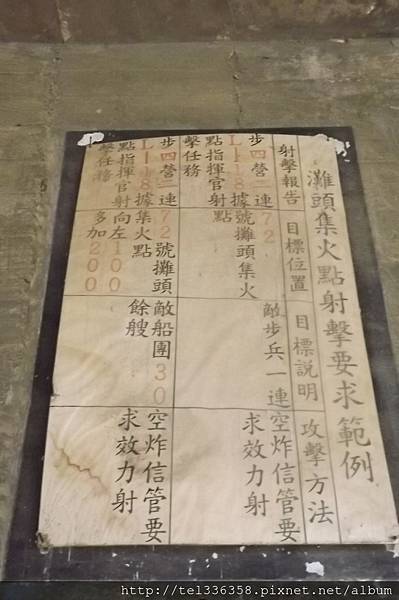 灘頭集火點射擊要求範例
射擊報告
目標位置
目標說明
攻擊方法
步四營二連
L118據
點指揮官射
擊任務
72
號灘頭集火
點
敵步兵一連
空炸信管要
求效力射
步四營二連
L118據
點指揮官射
擊任務
72號灘頭
集火點
向左100
多加200
敵船團30
餘艘
空炸信管要
求效力射
http://tel336358.pixnet.net/album